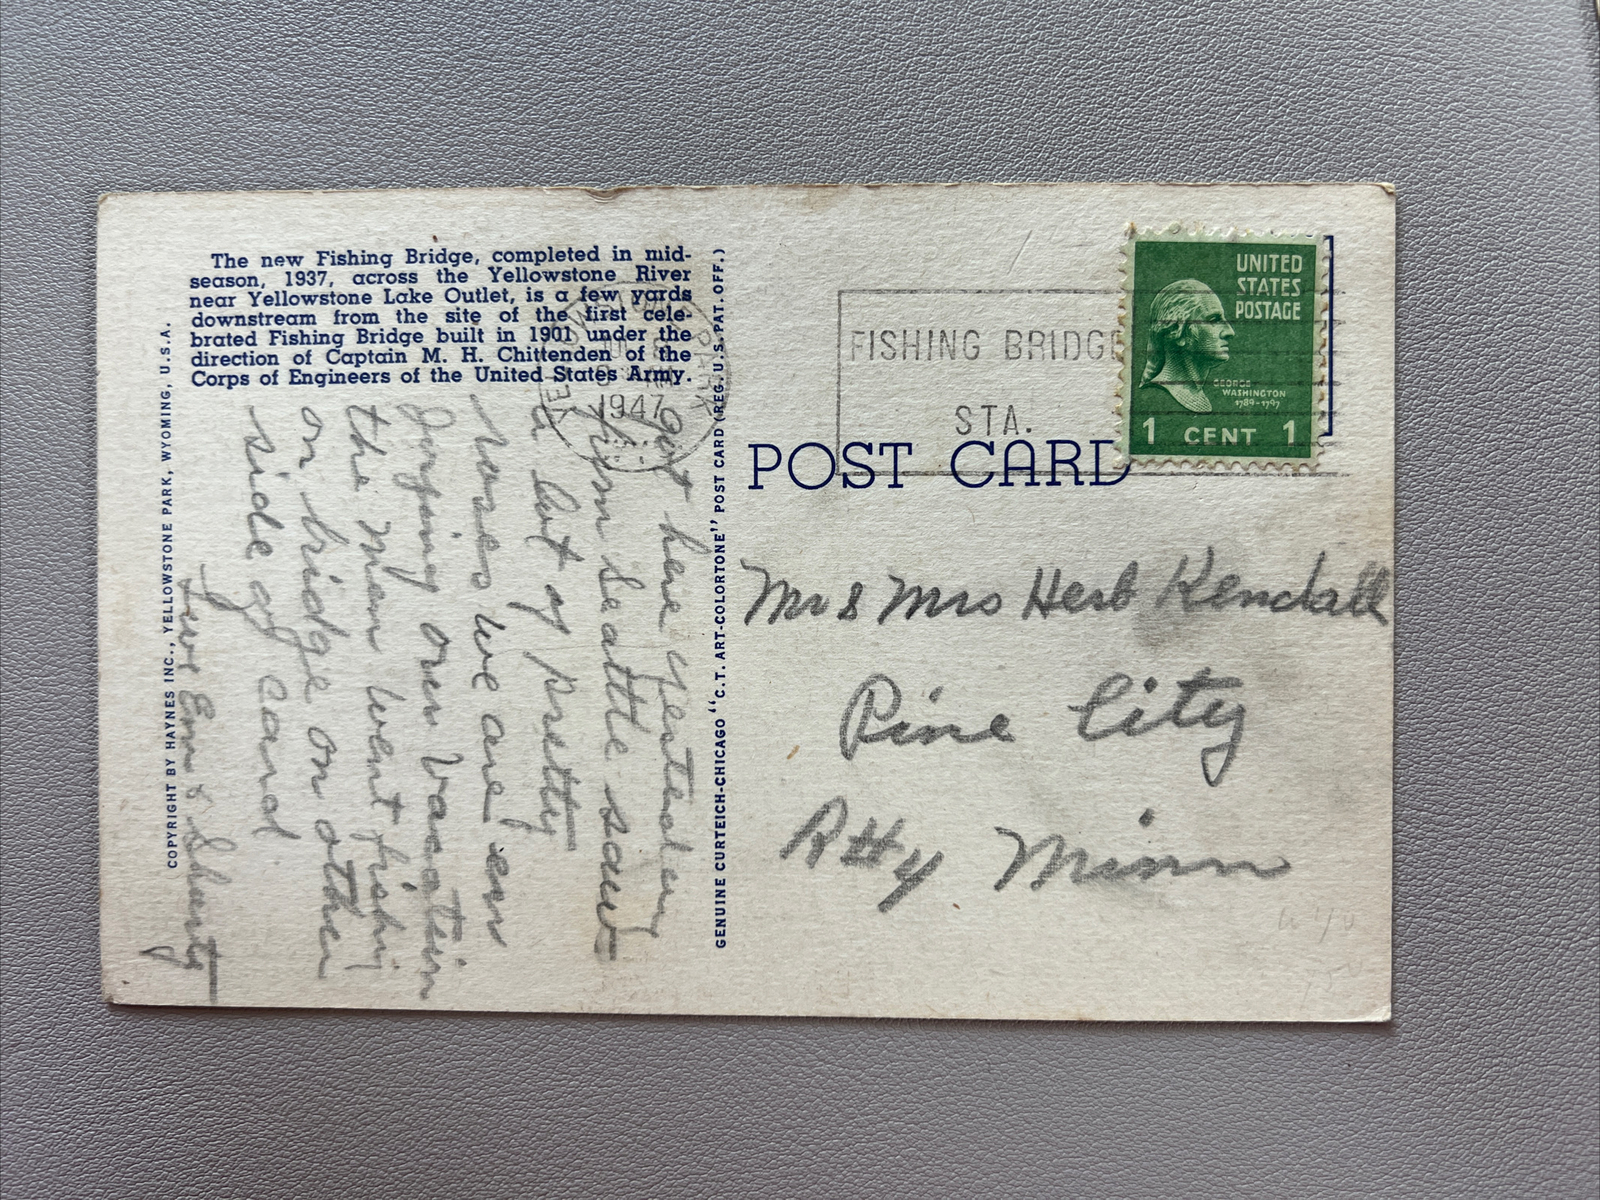 The new Fishing Bridge, completed in mid-
season, 1937, across the Yellowstone River
near Yellowstone Lake Outlet, is a few yards
downstream from the site of the first cele-
brated Fishing Bridge built in 1901 under the
direction of Captain M. H. Chittenden of the
Corps of Engineers of the United States Army.
COPYRIGHT BY HAYNES INC., YELLOWSTONE PARK, WYOMING, U.S.A.
Got here yesterday
from Seattle saw
a lot of pretty
horses we are
enjoying our vacation
the men went fishing
on bridge on other
side of card
Love Em & Shorty
GENUINE CURTEICH-CHICAGO "C.T. ART-COLORTONE" POST CARD (REG. U.S. PAT. OFF.)
PARK
1947
FISHING BRIDGE
STA.
UNITED
STATES
POSTAGE
GEORGE
WASHINGTON
1789-1797
1 CENT 1
POST CARD
Mr & Mrs Herb Kendall
Pine City
Minn